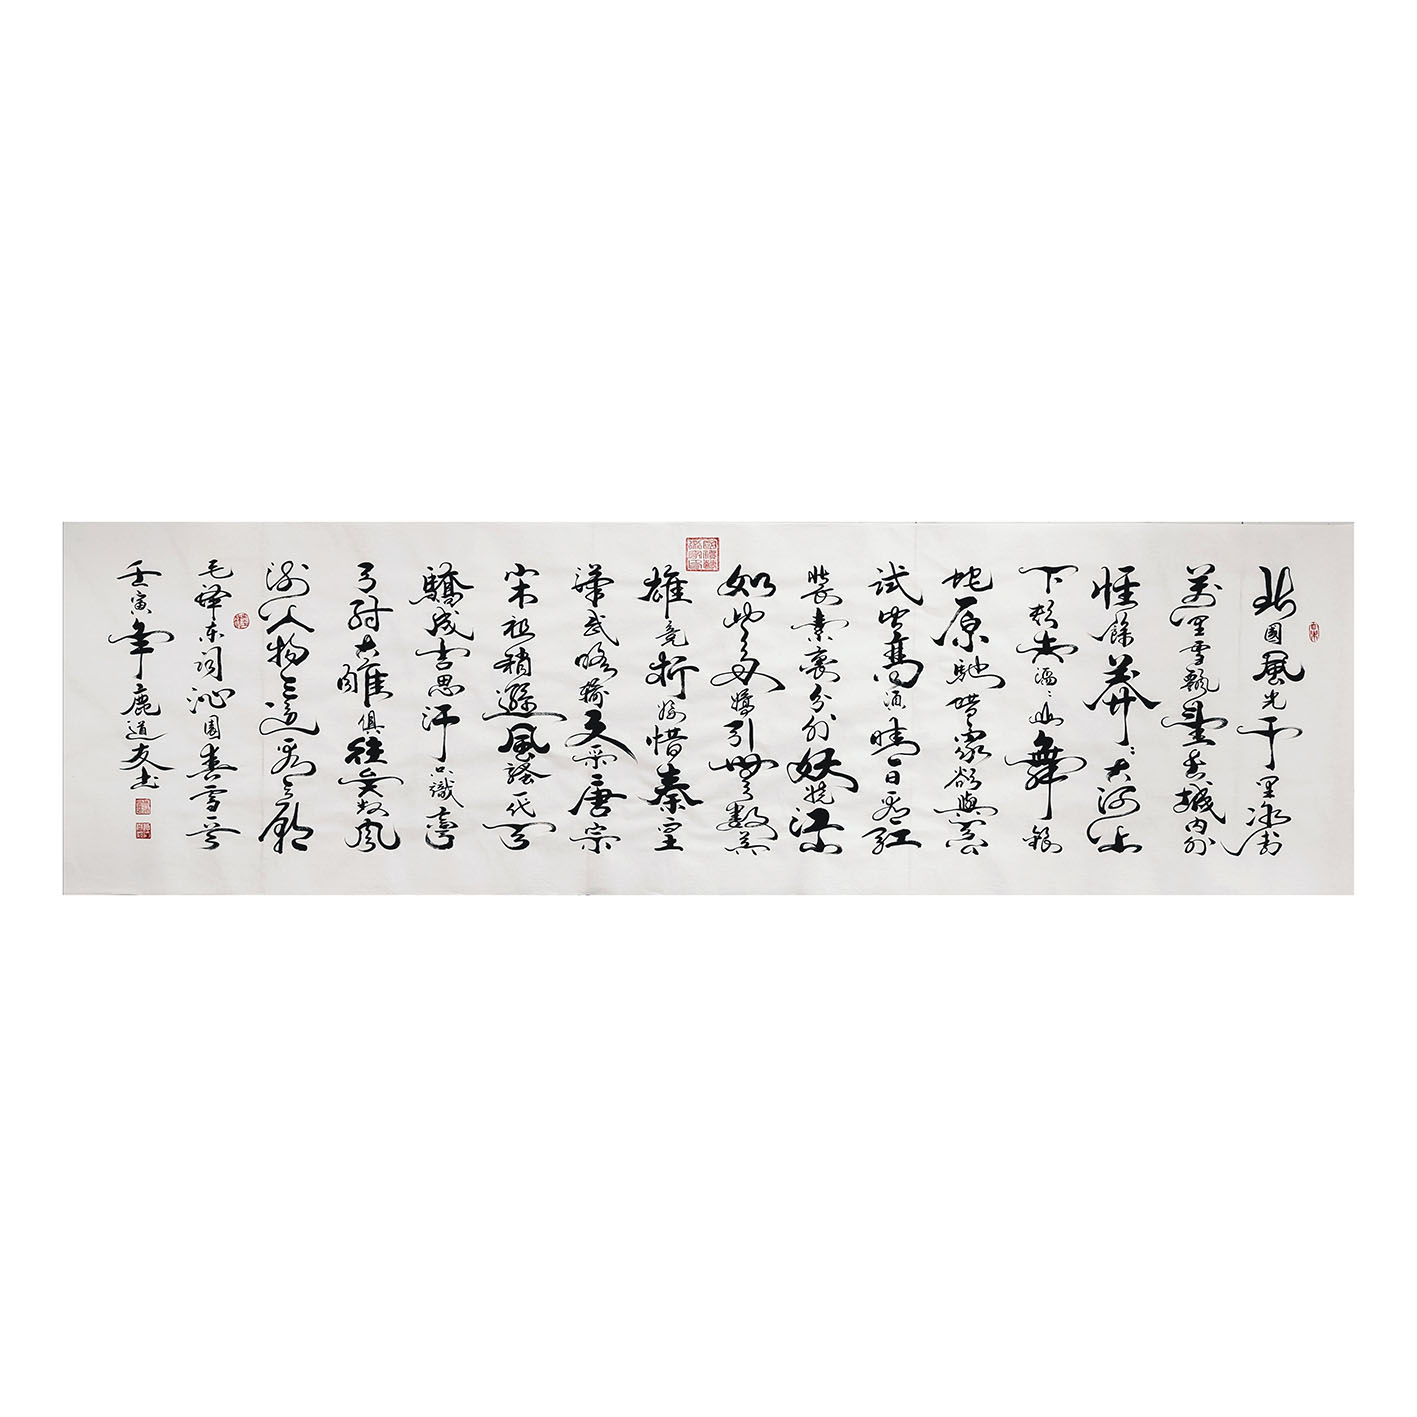 北國風光千里冰封
萬里雪飄望長城內外
惟餘莽々大河上
下頓失滔々山舞銀
蛇原馳蠟象欲與天公
試比高須晴日看紅
裝素裹分外妖嬈江山
如此多嬌引無數英
雄竟折腰惜秦皇
漢武略輸文采唐宗
宋祖稍遜風騷一代天
驕成吉思汗只識彎
弓射大雕俱往矣數風
流人物還看今朝
毛澤东詞沁園春雪一首
壬寅年鹿道友书